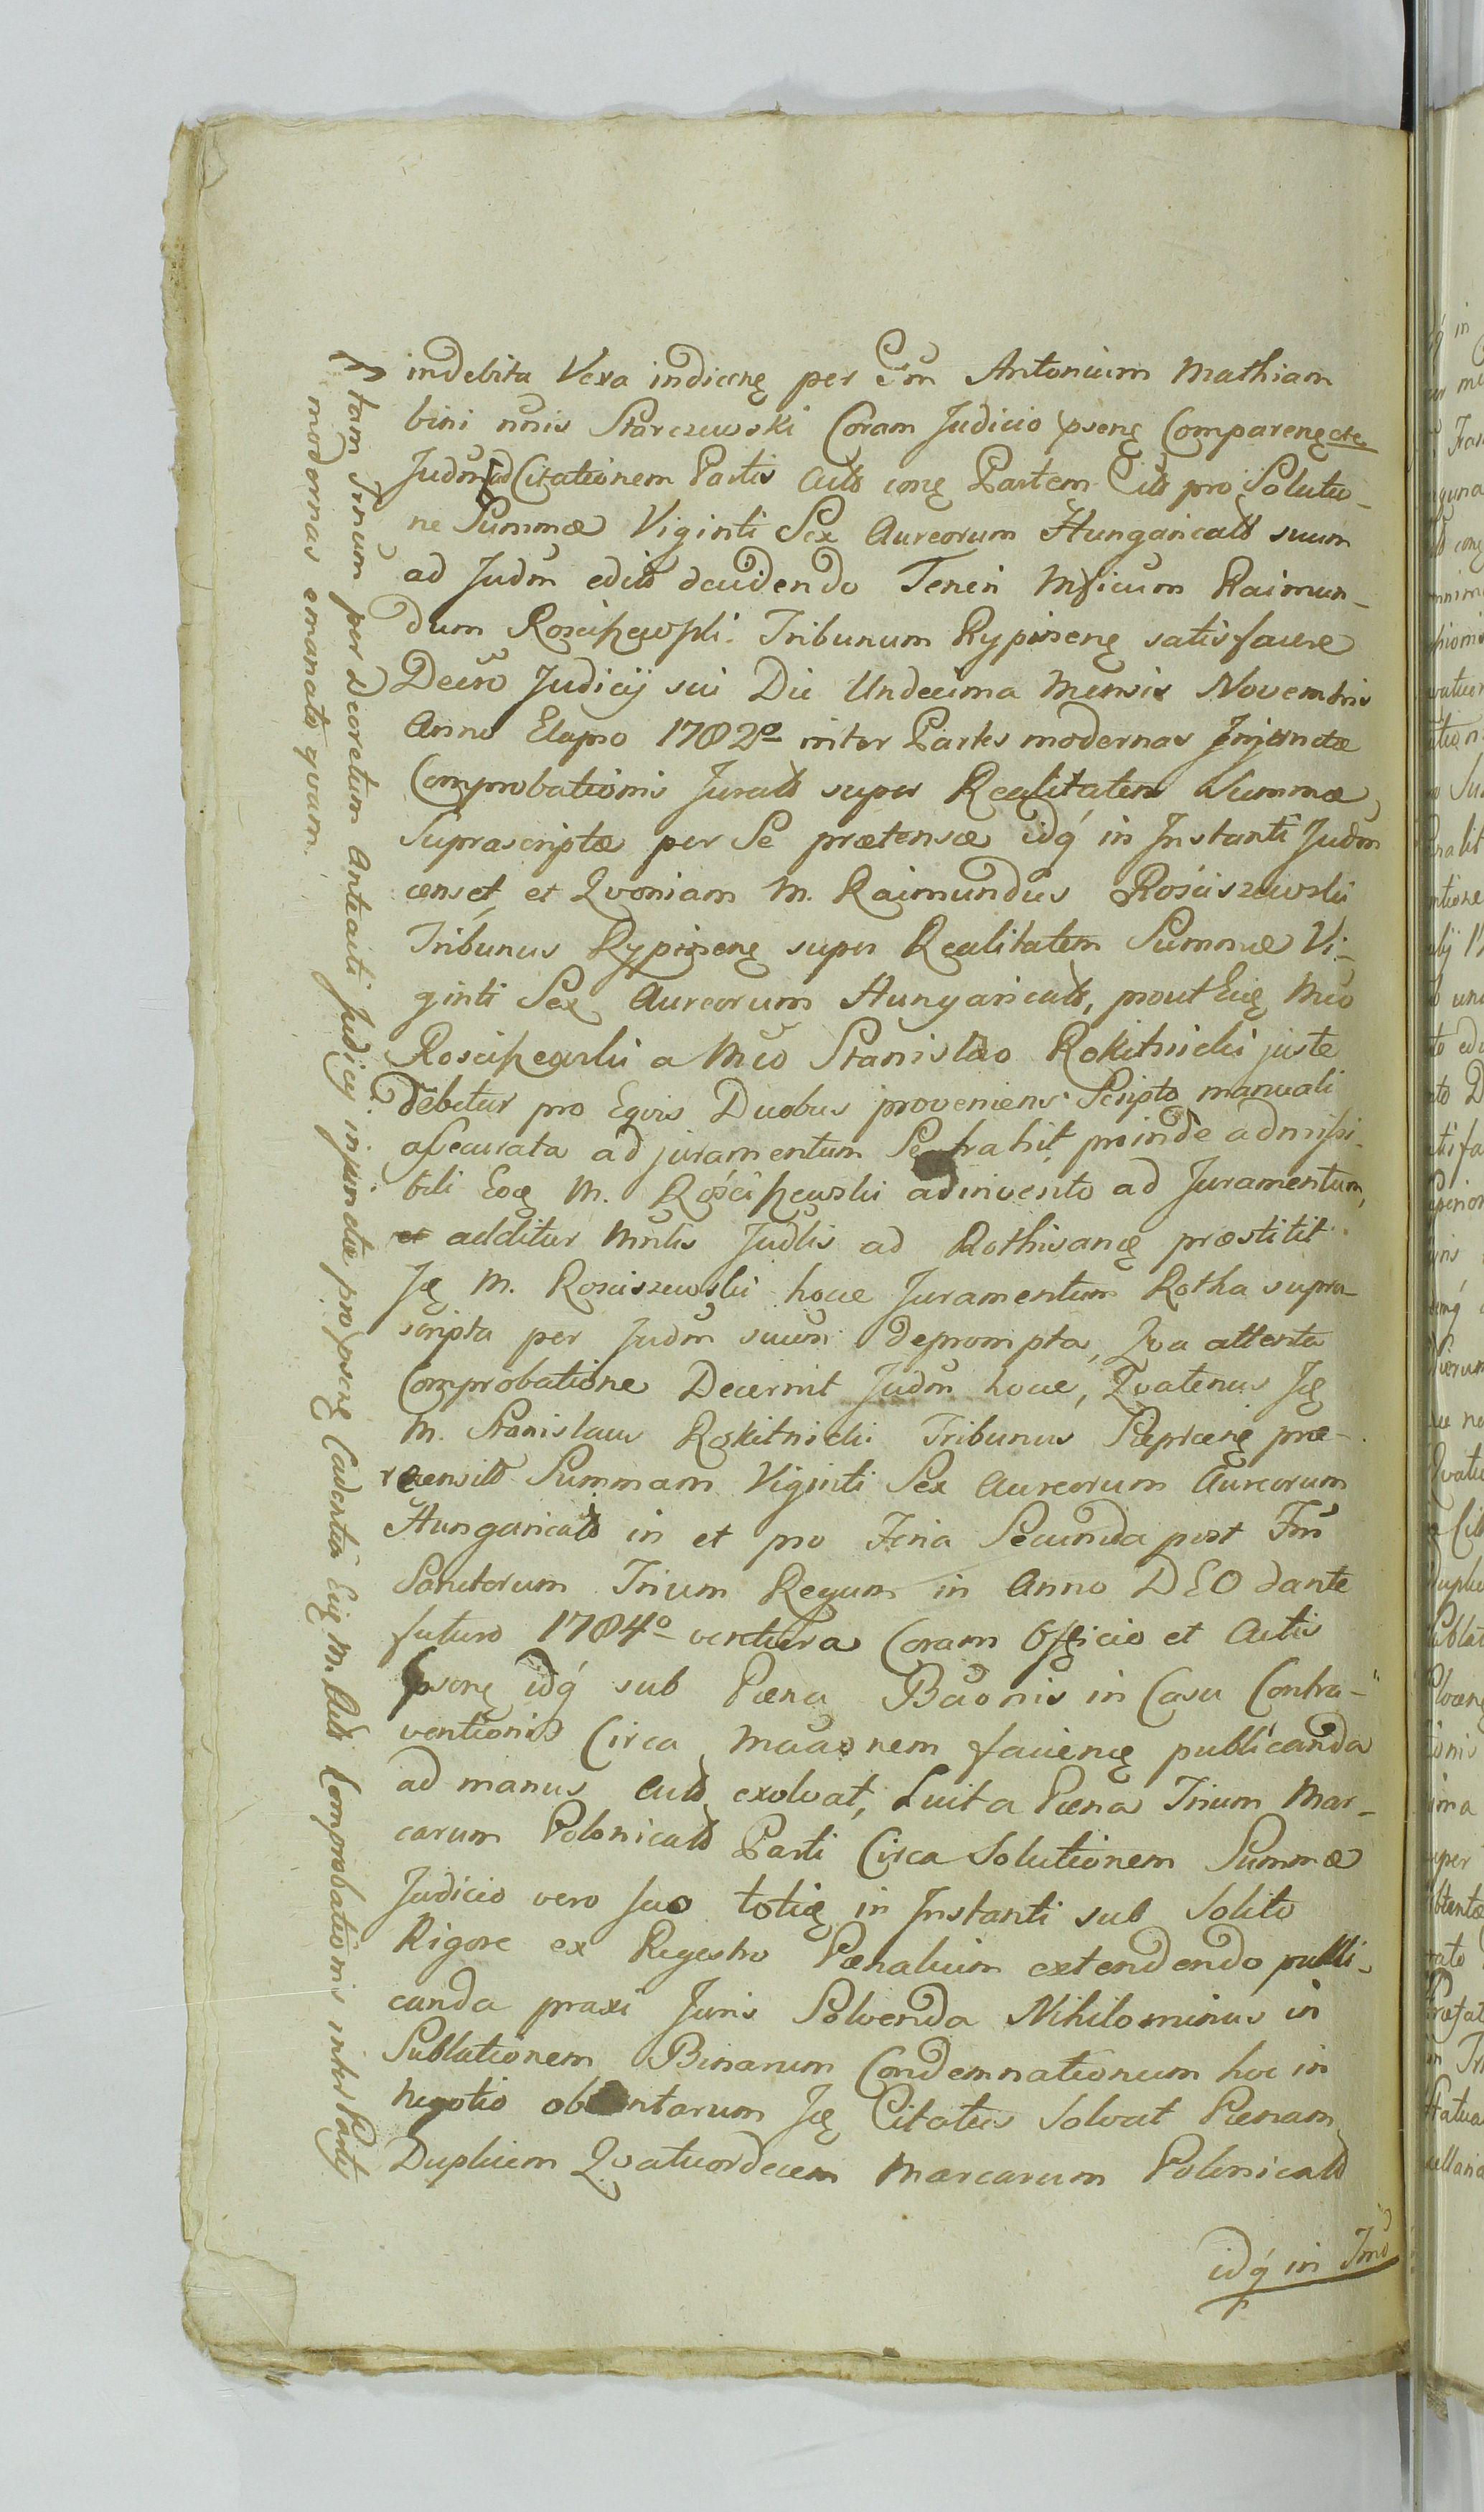 indebita Vexa indicenę per Gm̃ Antonium Mathiam
bini nñis Starczewski Coram Judicio pseng Compareng etc
Judm̃ ad Citationem Partis Actõ coñg Partem Citõ pro Solutio-
ne Summæ Viginti Sex Aureorum Hungaricalõ suum
ad Judm̃ editõ decidendo Teneri Mficum Raimun-
dum Rosciszewski Tribunum Rypinenę satisfacere
Decr̃o Judicij sui Die Undecima Mensis Novembris
Anno Elapso 1782º inter Partes modernas Injunctæ
Comprobationis Juratõ super Realitatem Summæ
Suprascriptæ per Se prætensæ idq́ in Instanti Judm̃
censet, et Qvoniam M. Raimundus Rościszewski
Tribunus Rypinenę super Realitatem Summæ Vi-
ginti Sex Aureorum Hungaricalõ, prout Eię Mco
Rosciszewski a Mco Stanislao Rokitnicki juste
debetur pro Eqvis Duobus proveniens Scripto manuali
assecurata ad juramentum Se trahit, proinde admissi-
bili Eoę M. Rościszewski adinvento ad Juramentum,
additur Mnlis Judlis ad Rothisanę præstitit
Ię M. Rosciszewski hocce Juramentum Rotha supra
scripta per Judm̃ suum deprompta, Qva attenta
Comprobatione Decernit Judm̃ hocce, Qvatenus Ię
M. Stanislaus Rokitnicki Tribunus Sieprcenę præ-
recensitõ Summam Viginti Sex Aureorum Aureorum
Hungaricalõ in et pro Feria Secunda post Fm̃
Sanctorum Trium Regum in Anno DEO dante
futuro 1784º ventura Coram Officio et Actis
psenę idq́ sub Pæna Bãonis in Casu Contra-
ventionis Circa Mãaonem facienę publicanda
ad manus Actõ exolvat, Luita Pæna Trium Mar-
carum Polonicalõ Parti Circa Solutionem Summæ
Judicio vero suo totię in Instanti sub Solito
Rigore ex Regestro Pænalium extendendo publi-
canda praxi Juris Solvenda Nihilominus in
Sublationem Binarum Condemnationum hoc in
Negotio obtentarum Ię Citatus Solvat Pænam
Duplicem Qvatuordecem Marcarum Polonicalõ
idq́ in Imõ
tam Trinum per Decretum Anteacti Judicij injunctæ pro psenę Cadentia Eię M. Actõ Comprobationis inter Partes
modernas emanato qvam.